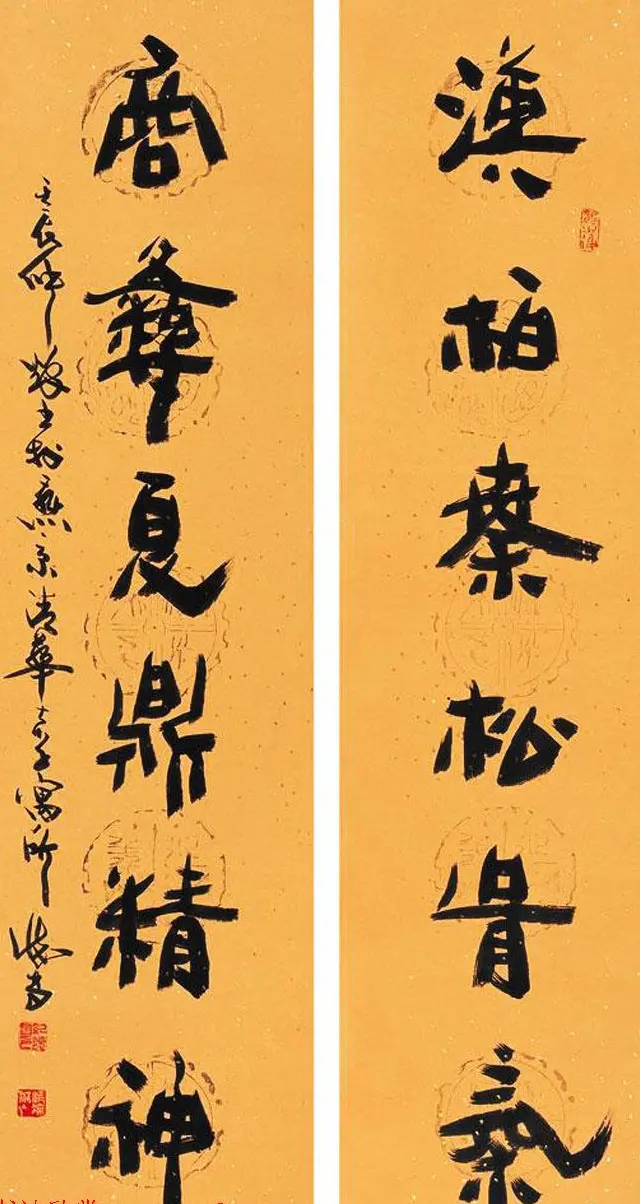 漢柏秦松骨氣
商彝夏鼎精神
壬辰仲秋書於燕京清華大學寓所